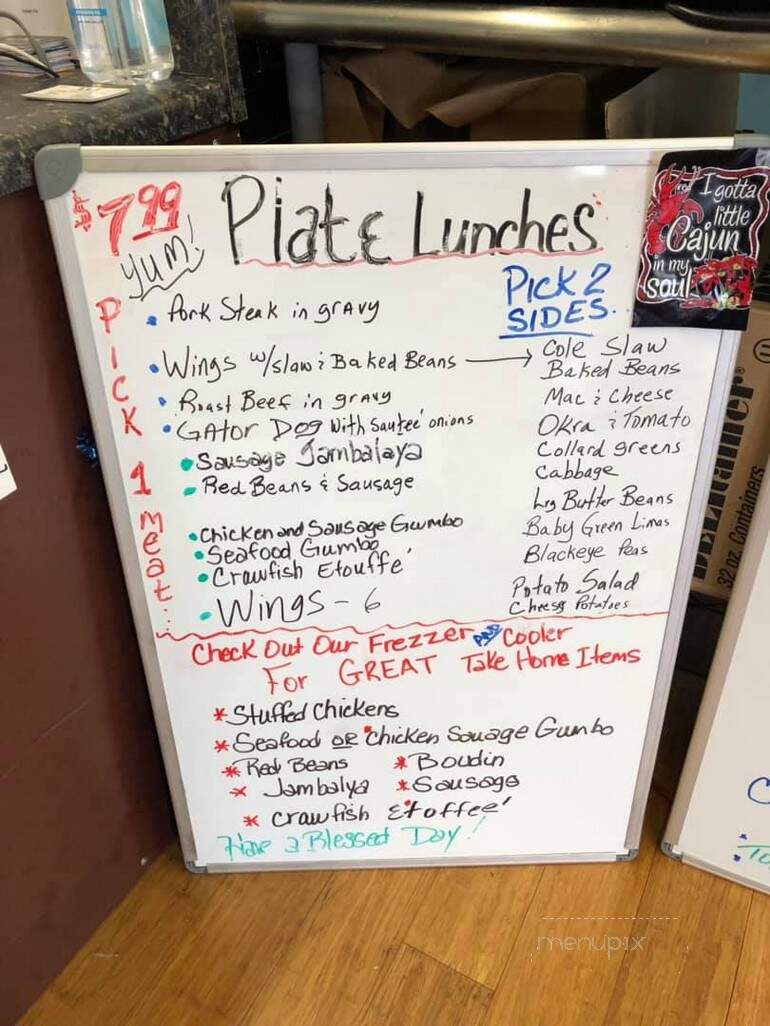 $7.99 Plate Lunches
YUM!
I gotta
little
Cajun
in my
soul
PICK 1 meat...
PICK 2
SIDES.
Pork Steak in gravy
Wings w/slaw & Baked Beans
Roast Beef in gravy
GAtor Dog With Sauteé onions
Sausage Jambalaya
Red Beans & Sausage
Chicken and Sausage Gumbo
Seafood Gumbo
Crawfish Etouffe'
Wings - 6
Cole Slaw
Baked Beans
Mac & Cheese
Okra & Tomato
Collard greens
Cabbage
Lrg Butter Beans
Baby Green Limas
Blackeye Peas
Potato Salad
Cheesy Potatoes
Check Out Our Frezzer AND Cooler
For GREAT Take Home Items
* Stuffed Chickens
* Seafood OR Chicken Sauage Gumbo
* Red Beans * Boudin
* Jambalya * Sausage
* Crawfish Etoffee'
Have a Blessed Day!
32 oz. Containers
menupix